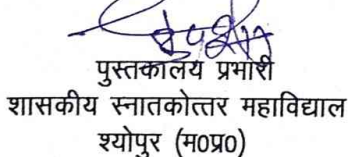 पुस्तकालय प्रभारी
शासकीय स्नातकोत्तर महाविद्याल
श्योपुर (म0प्र0)